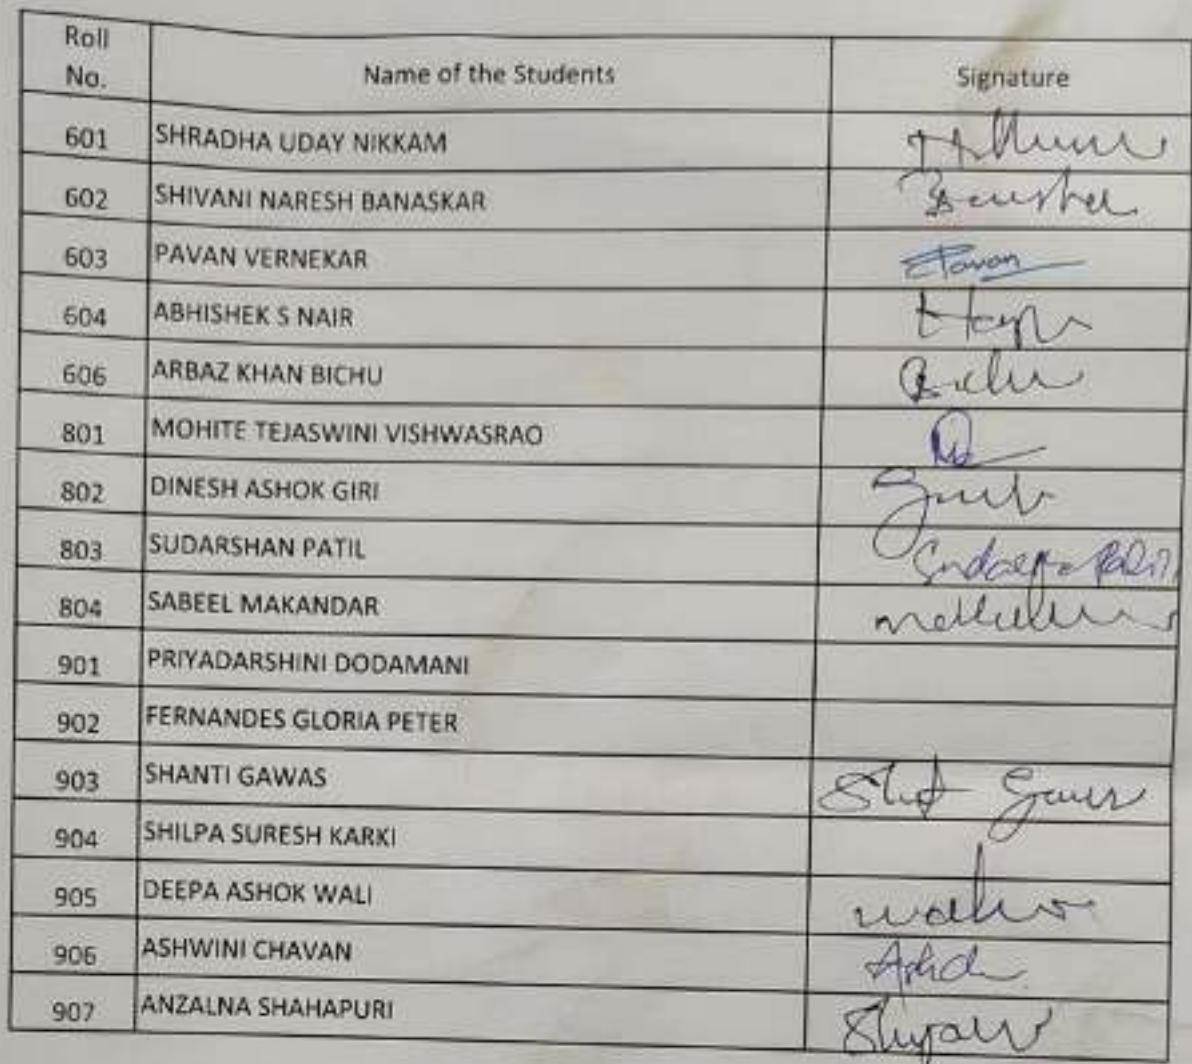 Roll No. Name of the Students Signature
601 SHRADHA UDAY NIKKAM
602 SHIVANI NARESH BANASKAR
603 PAVAN VERNEKAR Pavan
604 ABHISHEK S NAIR
606 ARBAZ KHAN BICHU
801 MOHITE TEJASWINI VISHWASRAO
802 DINESH ASHOK GIRI
803 SUDARSHAN PATIL
804 SABEEL MAKANDAR
901 PRIYADARSHINI DODAMANI
902 FERNANDES GLORIA PETER
903 SHANTI GAWAS
904 SHILPA SURESH KARKI
905 DEEPA ASHOK WALI
906 ASHWINI CHAVAN
907 ANZALNA SHAHAPURI